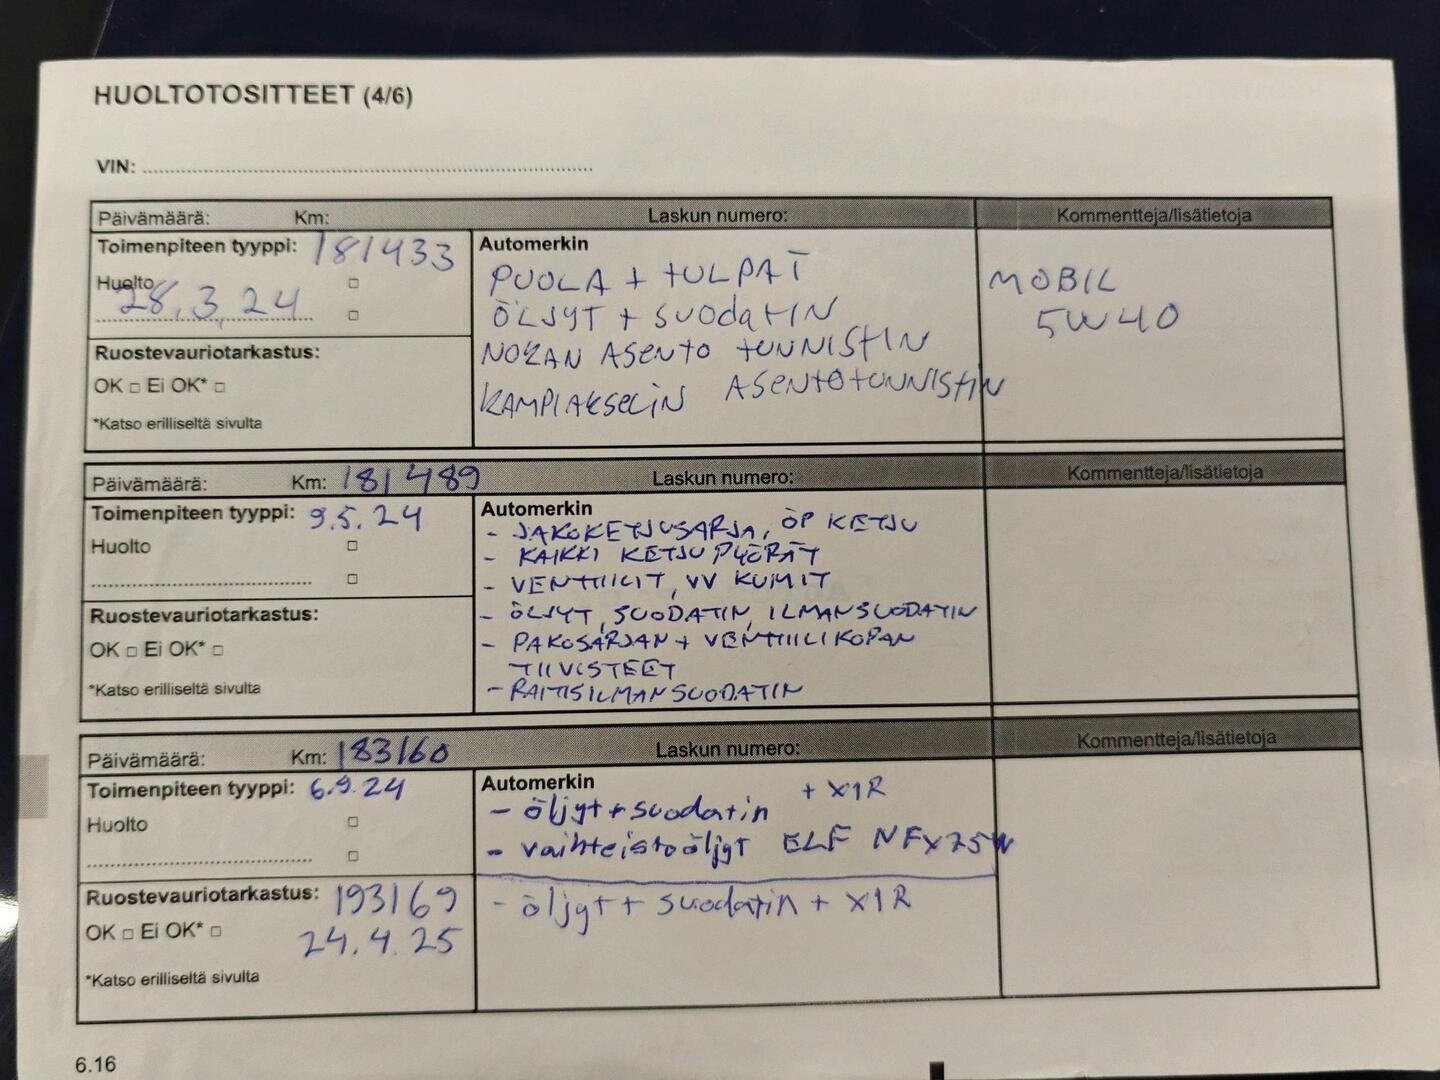 HUOLTOTOSITTEET (4/6)
VIN: ................................................
Päivämäärä: Km: Laskun numero: Kommentteja/lisätietoja
Toimenpiteen tyyppi: 181433
Huolto □
28.3.24 □
Ruostevauriotarkastus:
OK □ Ei OK* □
*Katso erilliseltä sivulta
Automerkin
PUOLA + TULPAT
ÖLJYT + SUODATIN
NOKAN ASENTO TUNNISTIN
KAMPIAKSELIN ASENTOTUNNISTIN
MOBIL
5W40
Päivämäärä: Km: 181489 Laskun numero: Kommentteja/lisätietoja
Toimenpiteen tyyppi: 9.5.24
Huolto □
................................ □
Ruostevauriotarkastus:
OK □ Ei OK* □
*Katso erilliseltä sivulta
Automerkin
- JAKOKETJUSARJA, ÖP KETJU
- KAIKKI KETJUPYÖRÄT
- VENTTIILIT, VV KUMIT
- ÖLJYT, SUODATIN, ILMANSUODATIN
- PAKOSARJAN + VENTTIILIKOPAN
TIIVISTEET
- RAITISILMANSUODATIN
Päivämäärä: Km: 183160 Laskun numero: Kommentteja/lisätietoja
Toimenpiteen tyyppi: 6.9.24
Huolto □
................................ □
Ruostevauriotarkastus: 193169
OK □ Ei OK* □ 24.4.25
*Katso erilliseltä sivulta
Automerkin
- öljyt + suodatin + X1R
- vaihteistoöljyt ELF NFX75W
- öljyt + suodatin + X1R
6.16